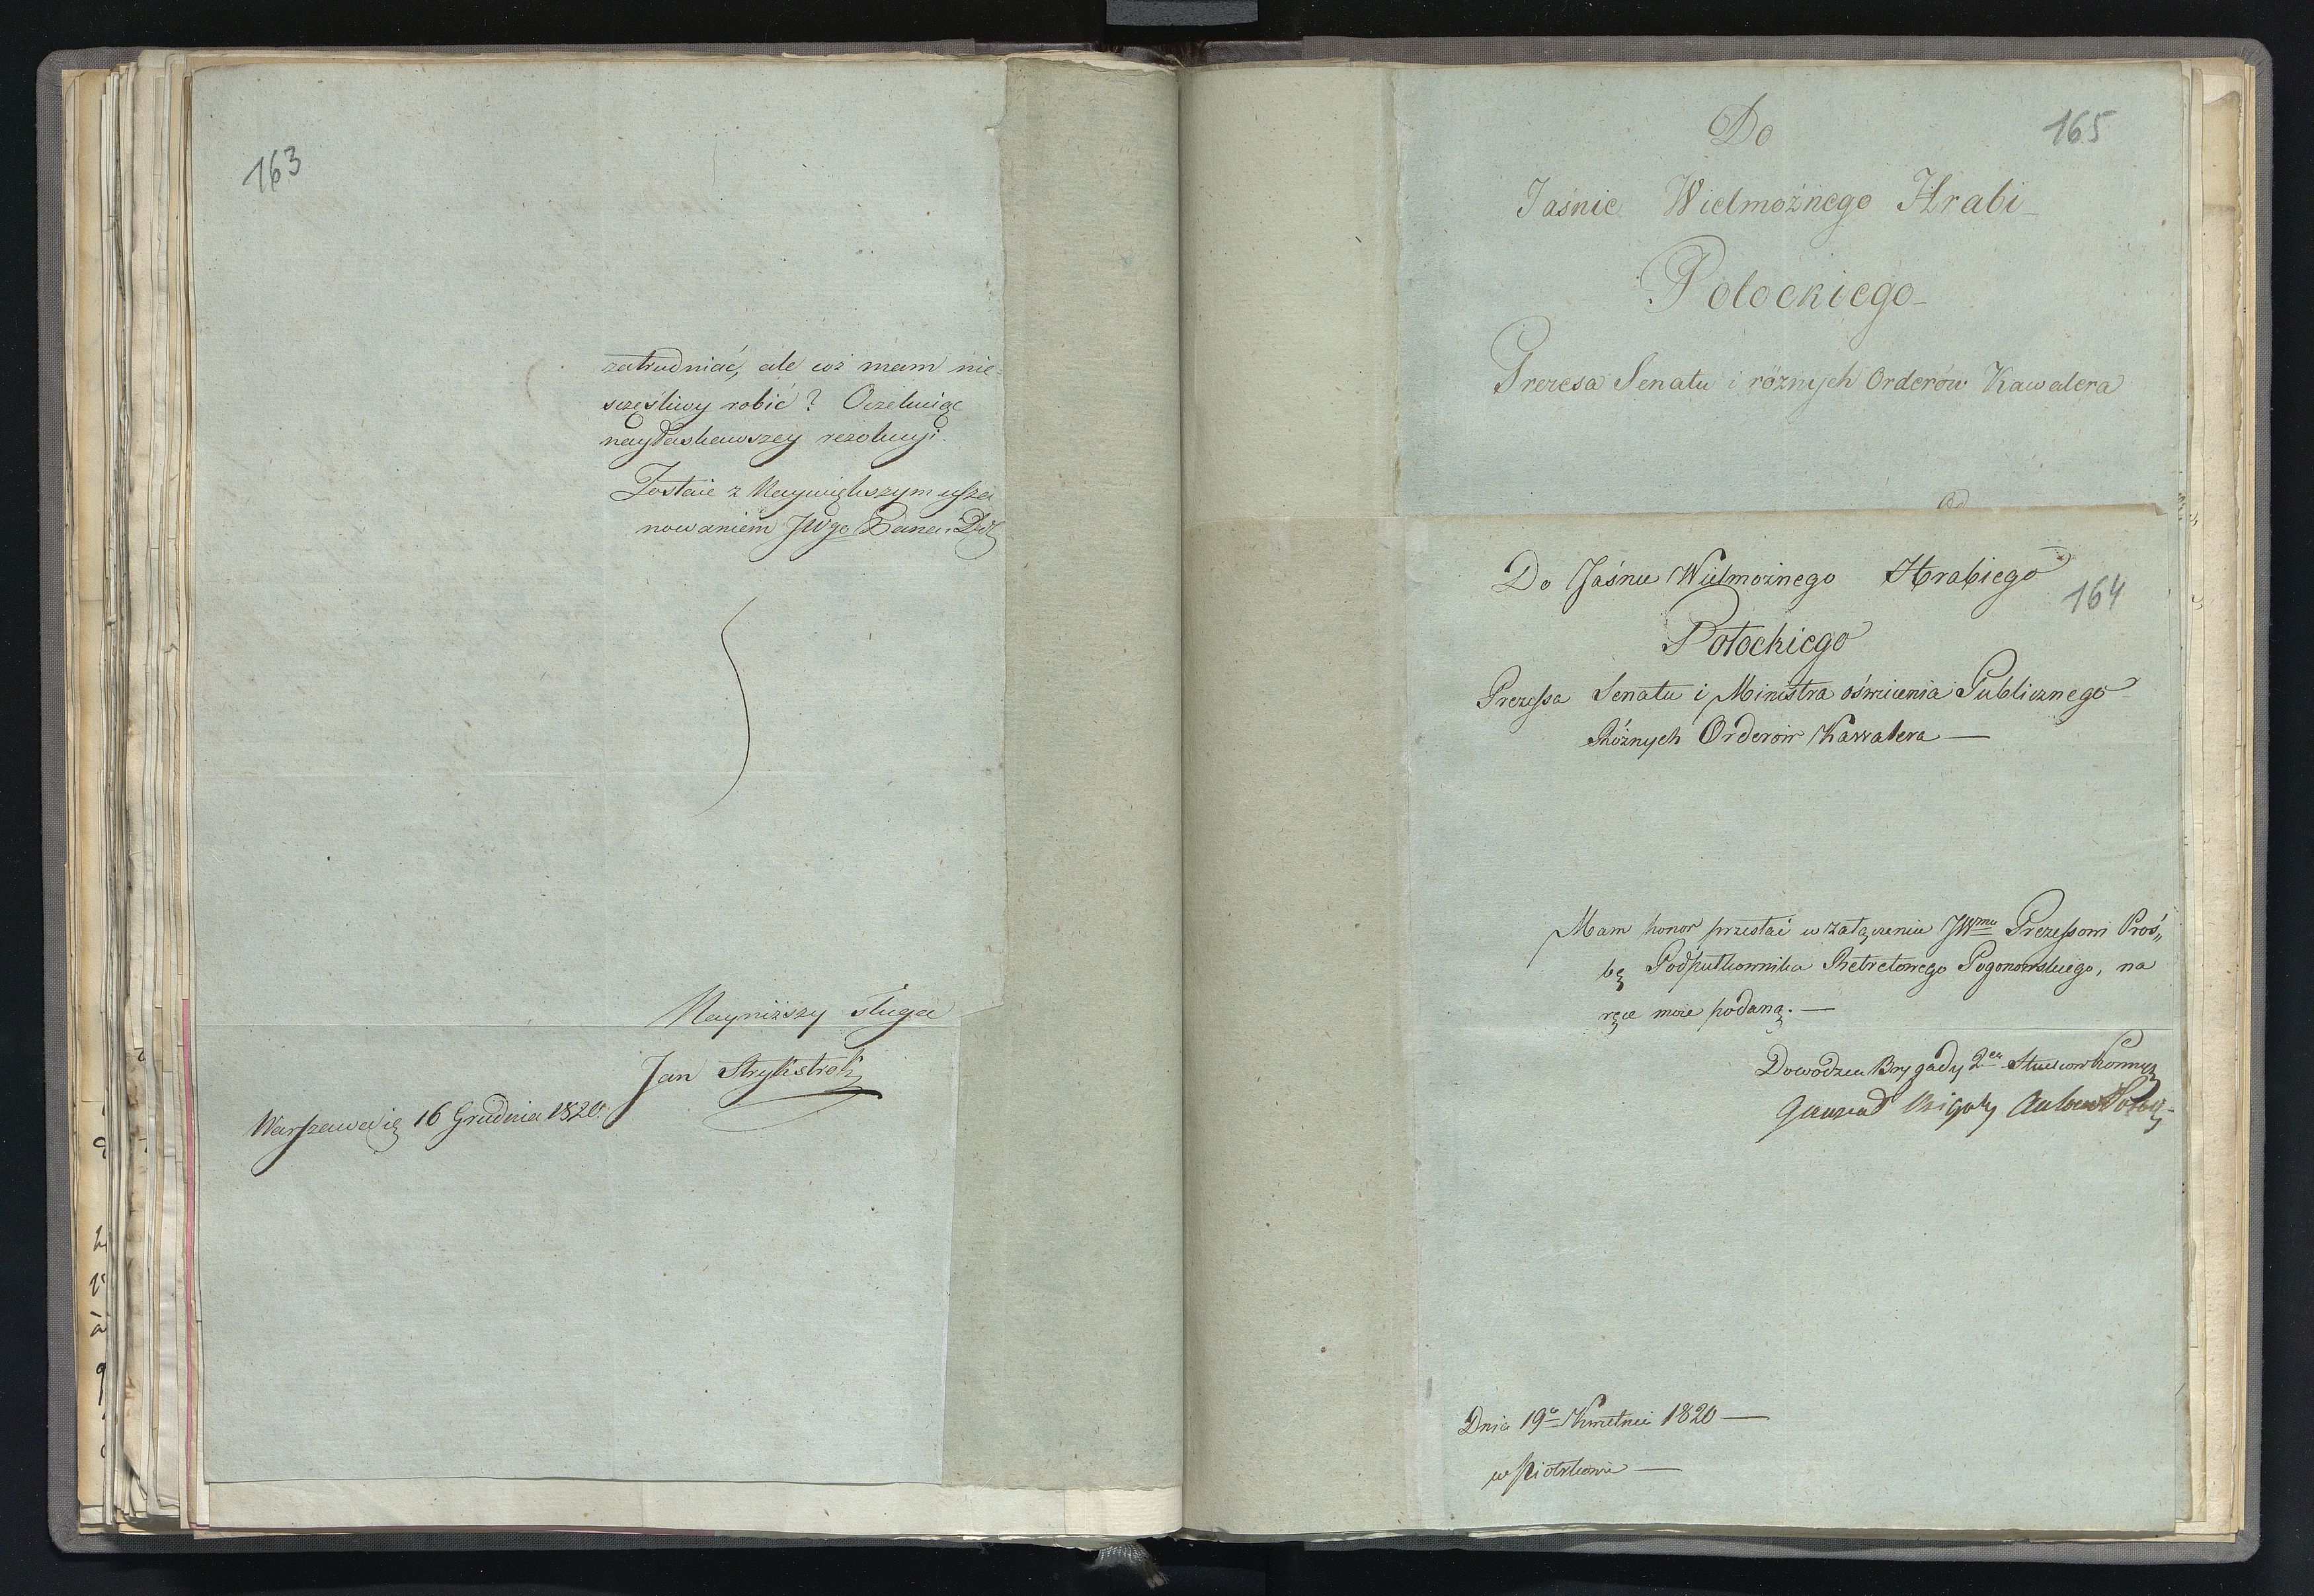 163
zatrudniać, ale coż mam nie-
sczęśliwy robić? Oczekuiąc
nayłaskawszey rezolucyi.
Zostaie z Naywiększym usza
nowaniem JWgo Pana Do
Nayniższy sługa
Jan
Warszawa 16 Grudnia 1820.
165
Do
Jaśnie Wielmożnego Hrabi
Potockiego
Prezesa Senatu i różnych Orderów Kawalera
Od
Do Jaśnie Wielmożnego Hrabiego
164
Potockiego
Prezessa Senatu i Ministra oświcenia Publicznego
Różnych Orderow Kawalera —
Mam honor przesłać w załączeniu JWmu Prezessowi Proś„
bę Podpułkownika Retretowego Pogonowskiego, na
ręce moie podaną. —
Dowodzca Brygady 2ey Strzelcow Konnych
Generał Brigady
Dnia 19o Kwietnia 1820 —
w Piotrkowie —